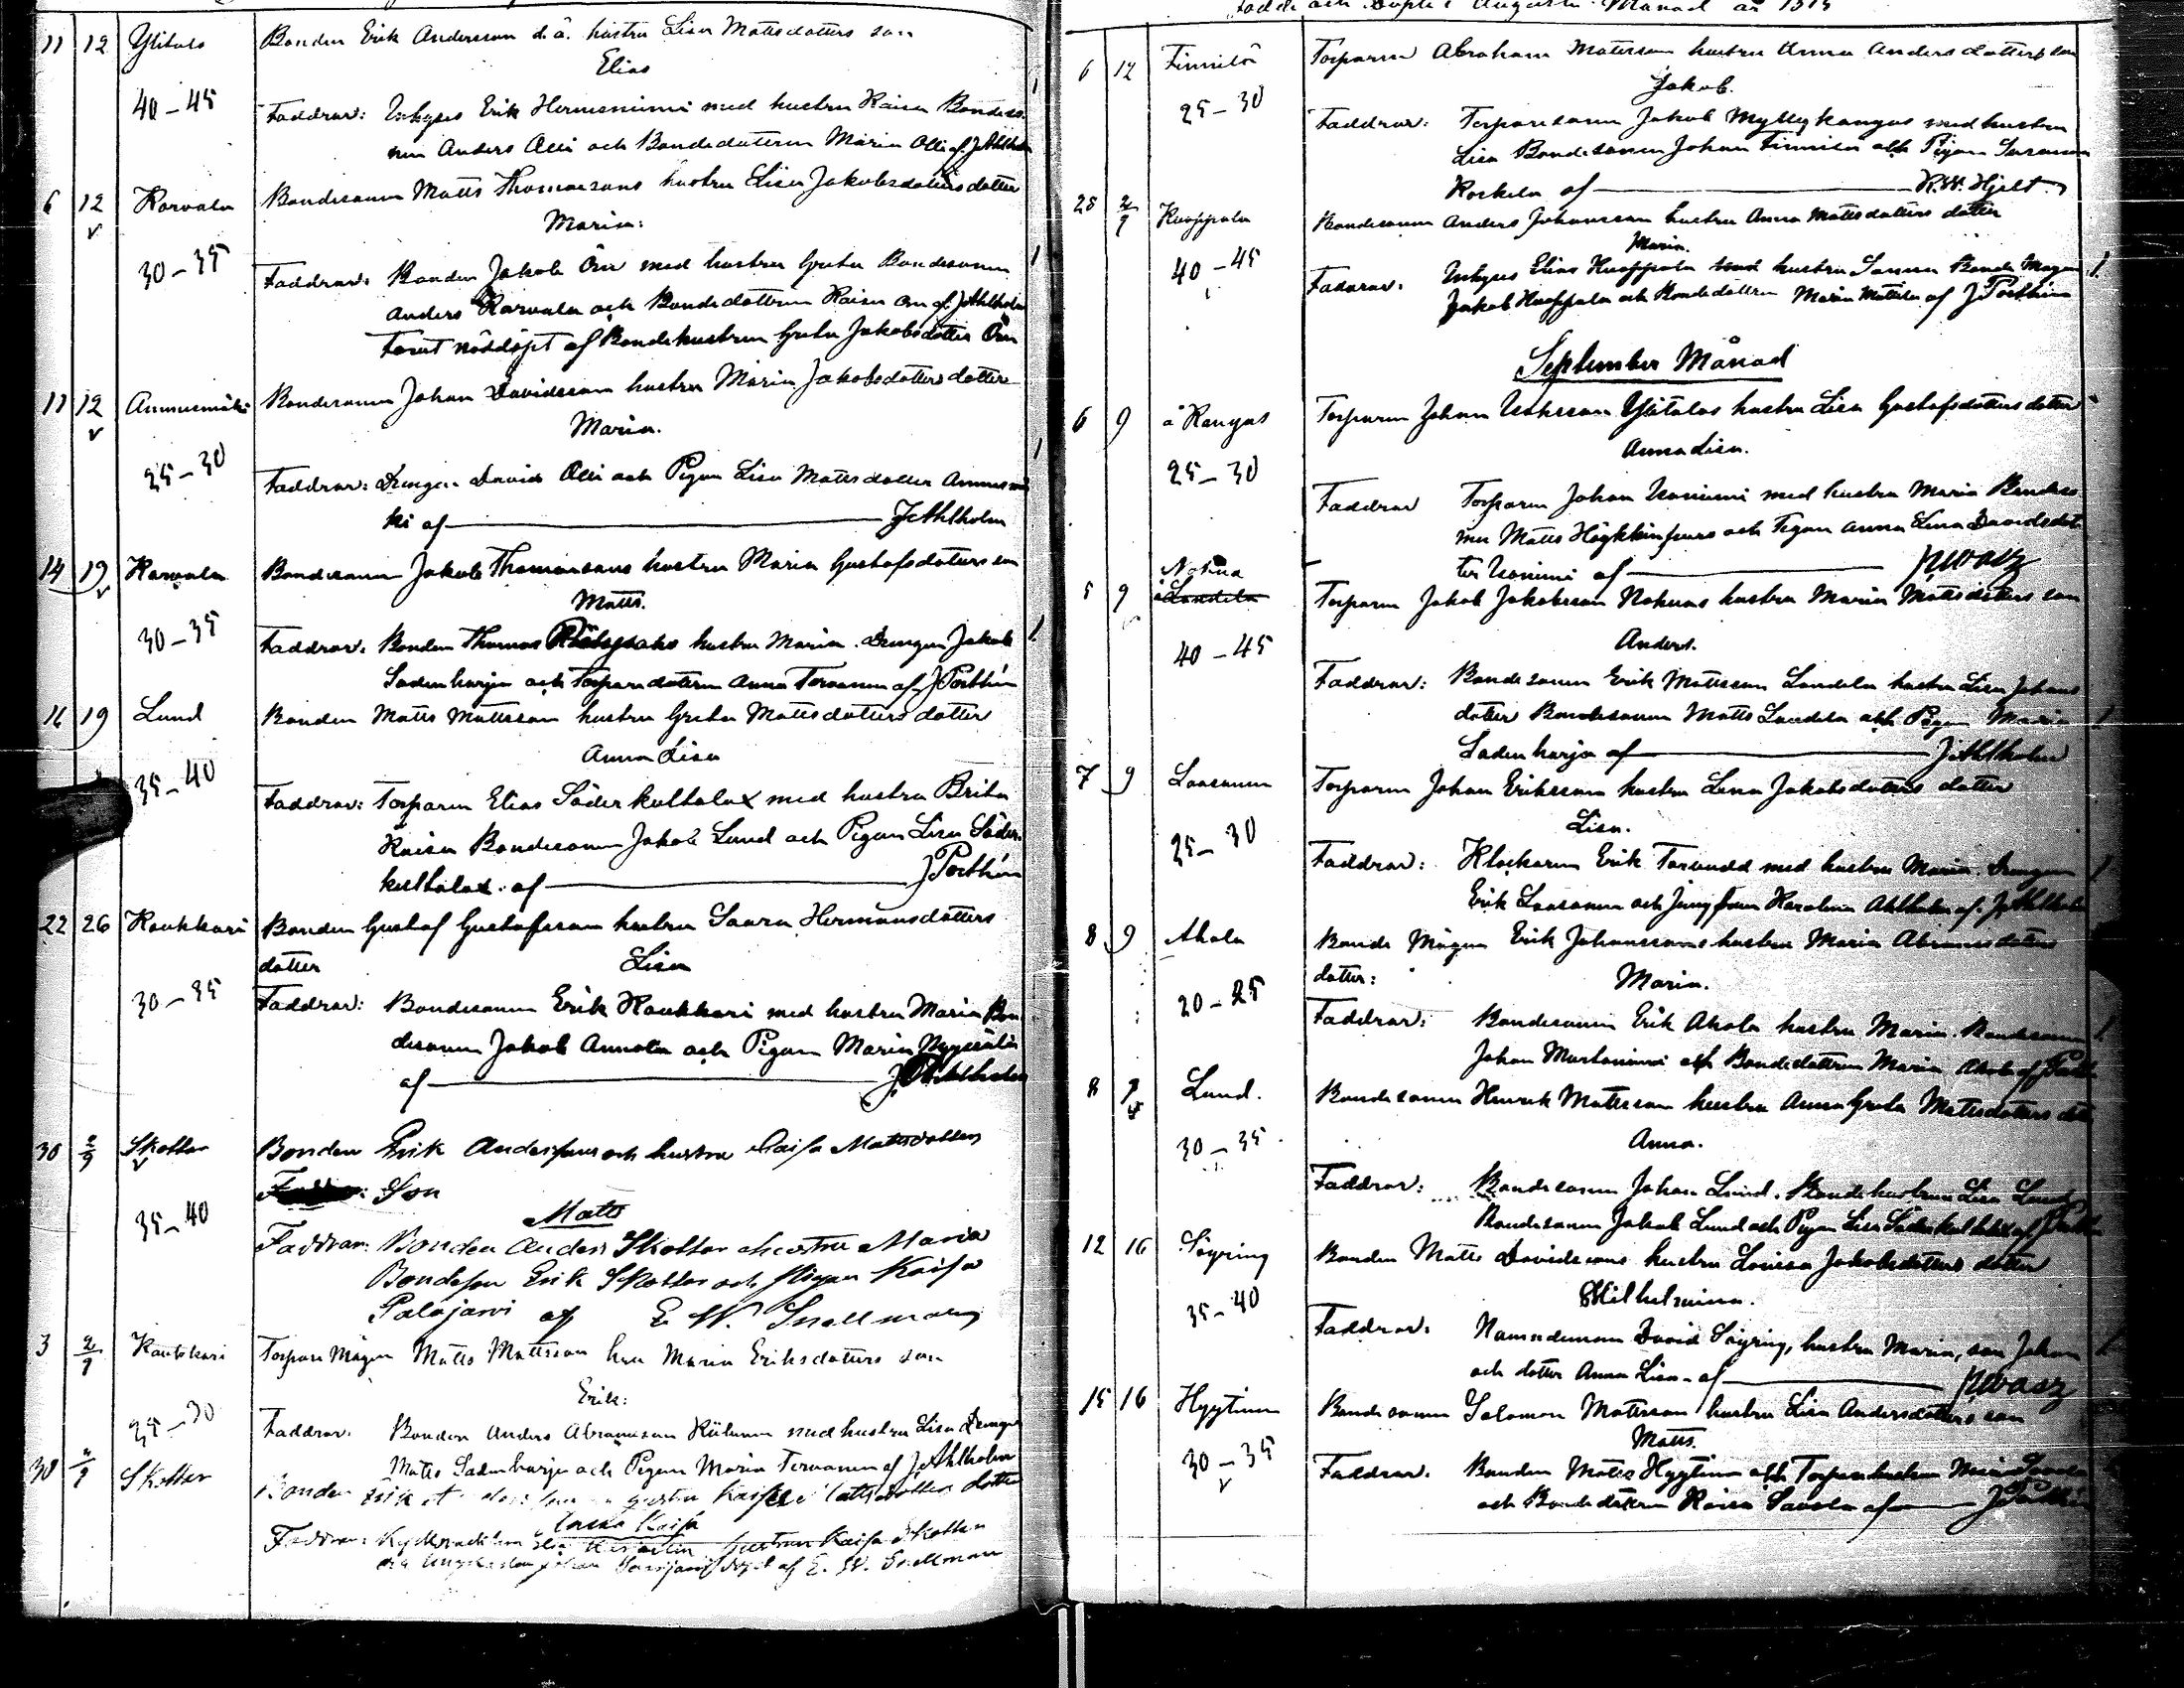 11 12 Ylitalo Bonden Erik Andersson d.ä. hustru Lisa Mattsdotters son
Elias
40-45 Faddrar: Inhyses Erik Hermanninmi med hustru Kaisa Bondeso-
nen Anders Olli och Bondedottren Maria Olli af. J Ahlholm
6 12 Karvala Bondesonen Matts Thomassons hustru Lisa Jakobsdotters dotter
Maria:
30-35 Faddrar: Bonden Jakob Örn med hustru Greta Bondesonen
Anders Karvala och Bondedottren Kaisa Örn af. J Ahlholm
Förut nöddöpt af Bondehustrun Greta Jakobsdotter Örn
11 12 Ammesmäki Bondesonen Johan Davidsson hustru Maria Jakobsdotters dotter
Maria.
25-30 Faddrar: Drengen David Olli och Pigan Lisa Mattsdotter Ammesmä
ki af J Ahlholm
14 19 Karvala Bondesonen Jakob Thomassons hustru Maria Gustafsdotters son
Matts.
30-35 Faddrar: Bonden Thomas hustru Maria. Drengen Jakob
Sadenharju och Torparedottren Anna Tervonen af J Porthén
16 19 Lund Bonden Matts Mattsson hustru Greta Mattsdotters dotter
Anna Lisa
35-40 Faddrar: Torparen Elias Söderkultalax med hustru Brita
Kaisa Bondesonen Jakob Lund och Pigan Lisa Söder-
kultalax. af J Porthén
22 26 Kaukkari Bonden Gustaf Gustafsson hustru Saara Hermansdotters
dotter Lisa
30-35 Faddrar: Bondesonen Erik Kaukkari med hustru Maria Bon
desonen Jakob Annola och Pigan Maria
af J Ahlholm
30 2/9 Skottar Bonden Erik Andersson och hustru Kaisa Mattsdotters
Son
Matts
35-40 Faddrar: Bonden Anders Skottar o hustru Maria
Bondeson Erik Skottar och Pigan Kaisa
Palojärvi af E. W. Snellman
3 2/9 Kaukkari Torpare Mågen Matts Mattsson hru Maria Eriksdotters son
Erik:
25-30 Faddrar. Bonden Anders Abramsson med hustru Lisa Drengen
Matts Sadenharju och Pigan Maria Tervonen af J Ahlholm
30 2/9 Skottar Bonden Erik Andersson hustru Kaisa Mattsdotters dotter
Kaisa
Faddrar: hustrun Kaisa Skottar
af E. W. Snellman
Födde och Döpte i Augusti Månad år
6 12 Finnilä Torparen Abraham Mattsson hustru Anna Andersdotters son
Jakob.
25-30 Faddrar: Torparesonen Jakob Myllykangas med hustru
Lisa Bondesonen Johan Finnilä och Pigan Susanna
Koskela af K. W. Hjelt.
25 2/9 Kuoppala Bondesonen Anders Johansson hustru Anna Mattsdotters dotter
Maria.
40-45 Faddrar: Inhyses Elias Kuoppala hustru Sanna Bonde Mågen
Jakob Kuoppala och Bondedottren Maria Mattila af J Porthén
September Månad
6 9 å Kangas Torparen Johan Isaksson Ylitalos hustru Lisa Gustafsdotters dotter
Anna Lisa.
25-30 Faddrar Torparen Johan Isoniemi med hustru Maria Bondeso
nen Matts och Pigan Anna Lena Davidsdot
ter Isoniemi af
5 9 Nokua
å Landela Torparen Jakob Jakobsson Nokuas hustru Maria Mattsdotters son
Anders.
40-45 Faddrar: Bondesonen Erik Mattsson Landela hustru Lisa Johans
dotter Bondesonen Matts Landela och Pigan Maria
Sadenharju af J Ahlholm
7 9 Laasanen Torparen Johan Eriksson hustru Lena Jakobsdotters dotter
Lisa.
25-30 Faddrar: Klockaren Erik Torvudd med hustru Maria. Drengen
Erik Laasanen och Jungfrun Karolina Ahlholm af. J Ahlholm
8 9 Ahola Bonde Mågen Erik Johanssons hustru Maria Abramsdotters
dotter: Maria.
20-25 Faddrar: Bondesonen Erik Ahola hustru Maria. Bondesonen
Johan Murtoniemi och Bondedottren Maria Ahola af
8 9 Lund. Bondesonen Henrik Mattsson hustru Anna Greta Mattsdotters dot
Anna.
30-35 Faddrar: Bondesonen Johan Lund. Bondehustrun Lisa Lund
Bondesonen Jakob Lund och Pigan Lisa Söderkultalax af
12 16 Söyring Bonden Matts Davidssons hustru Lovisa Jakobsdotters dotter
Wilhelmina.
35-40 Faddrar: Nämndeman David Söyring, hustru Maria, son Johan
och dotter Anna Lisa - af
15 16 Hyytinen Bondesonen Salomon Mattsson hustru Lisa Andersdotters son
Matts.
30-35 Faddrar. Bonden Matts Hyytinen och Torparehustrun Maria
och Bondedottren Kaisa Savola af J Porthén